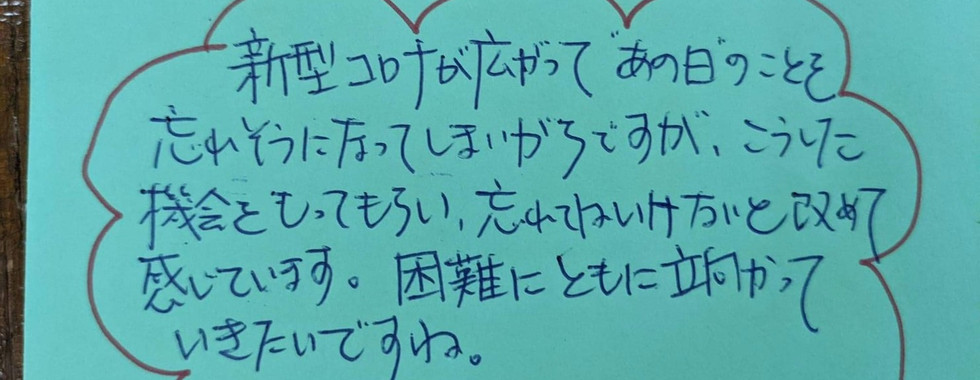 新型コロナが広がって"あの日"のことを
忘れそうになってしまいがちですが、こうした
機会をもってもらい、忘れてはいけないと改めて
感じています。困難にともに立向かって
いきたいですね。